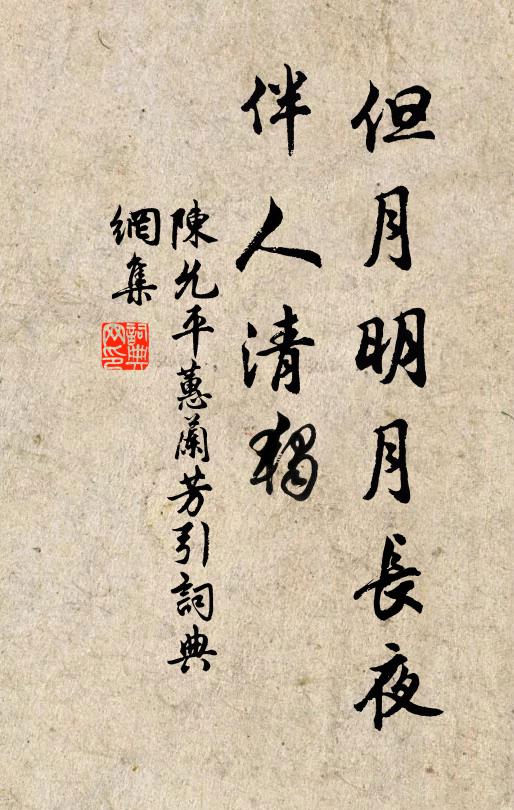 但月明月長夜
伴人清獨
陳允平蕙蘭芳引詞典
網集
詞典
网印